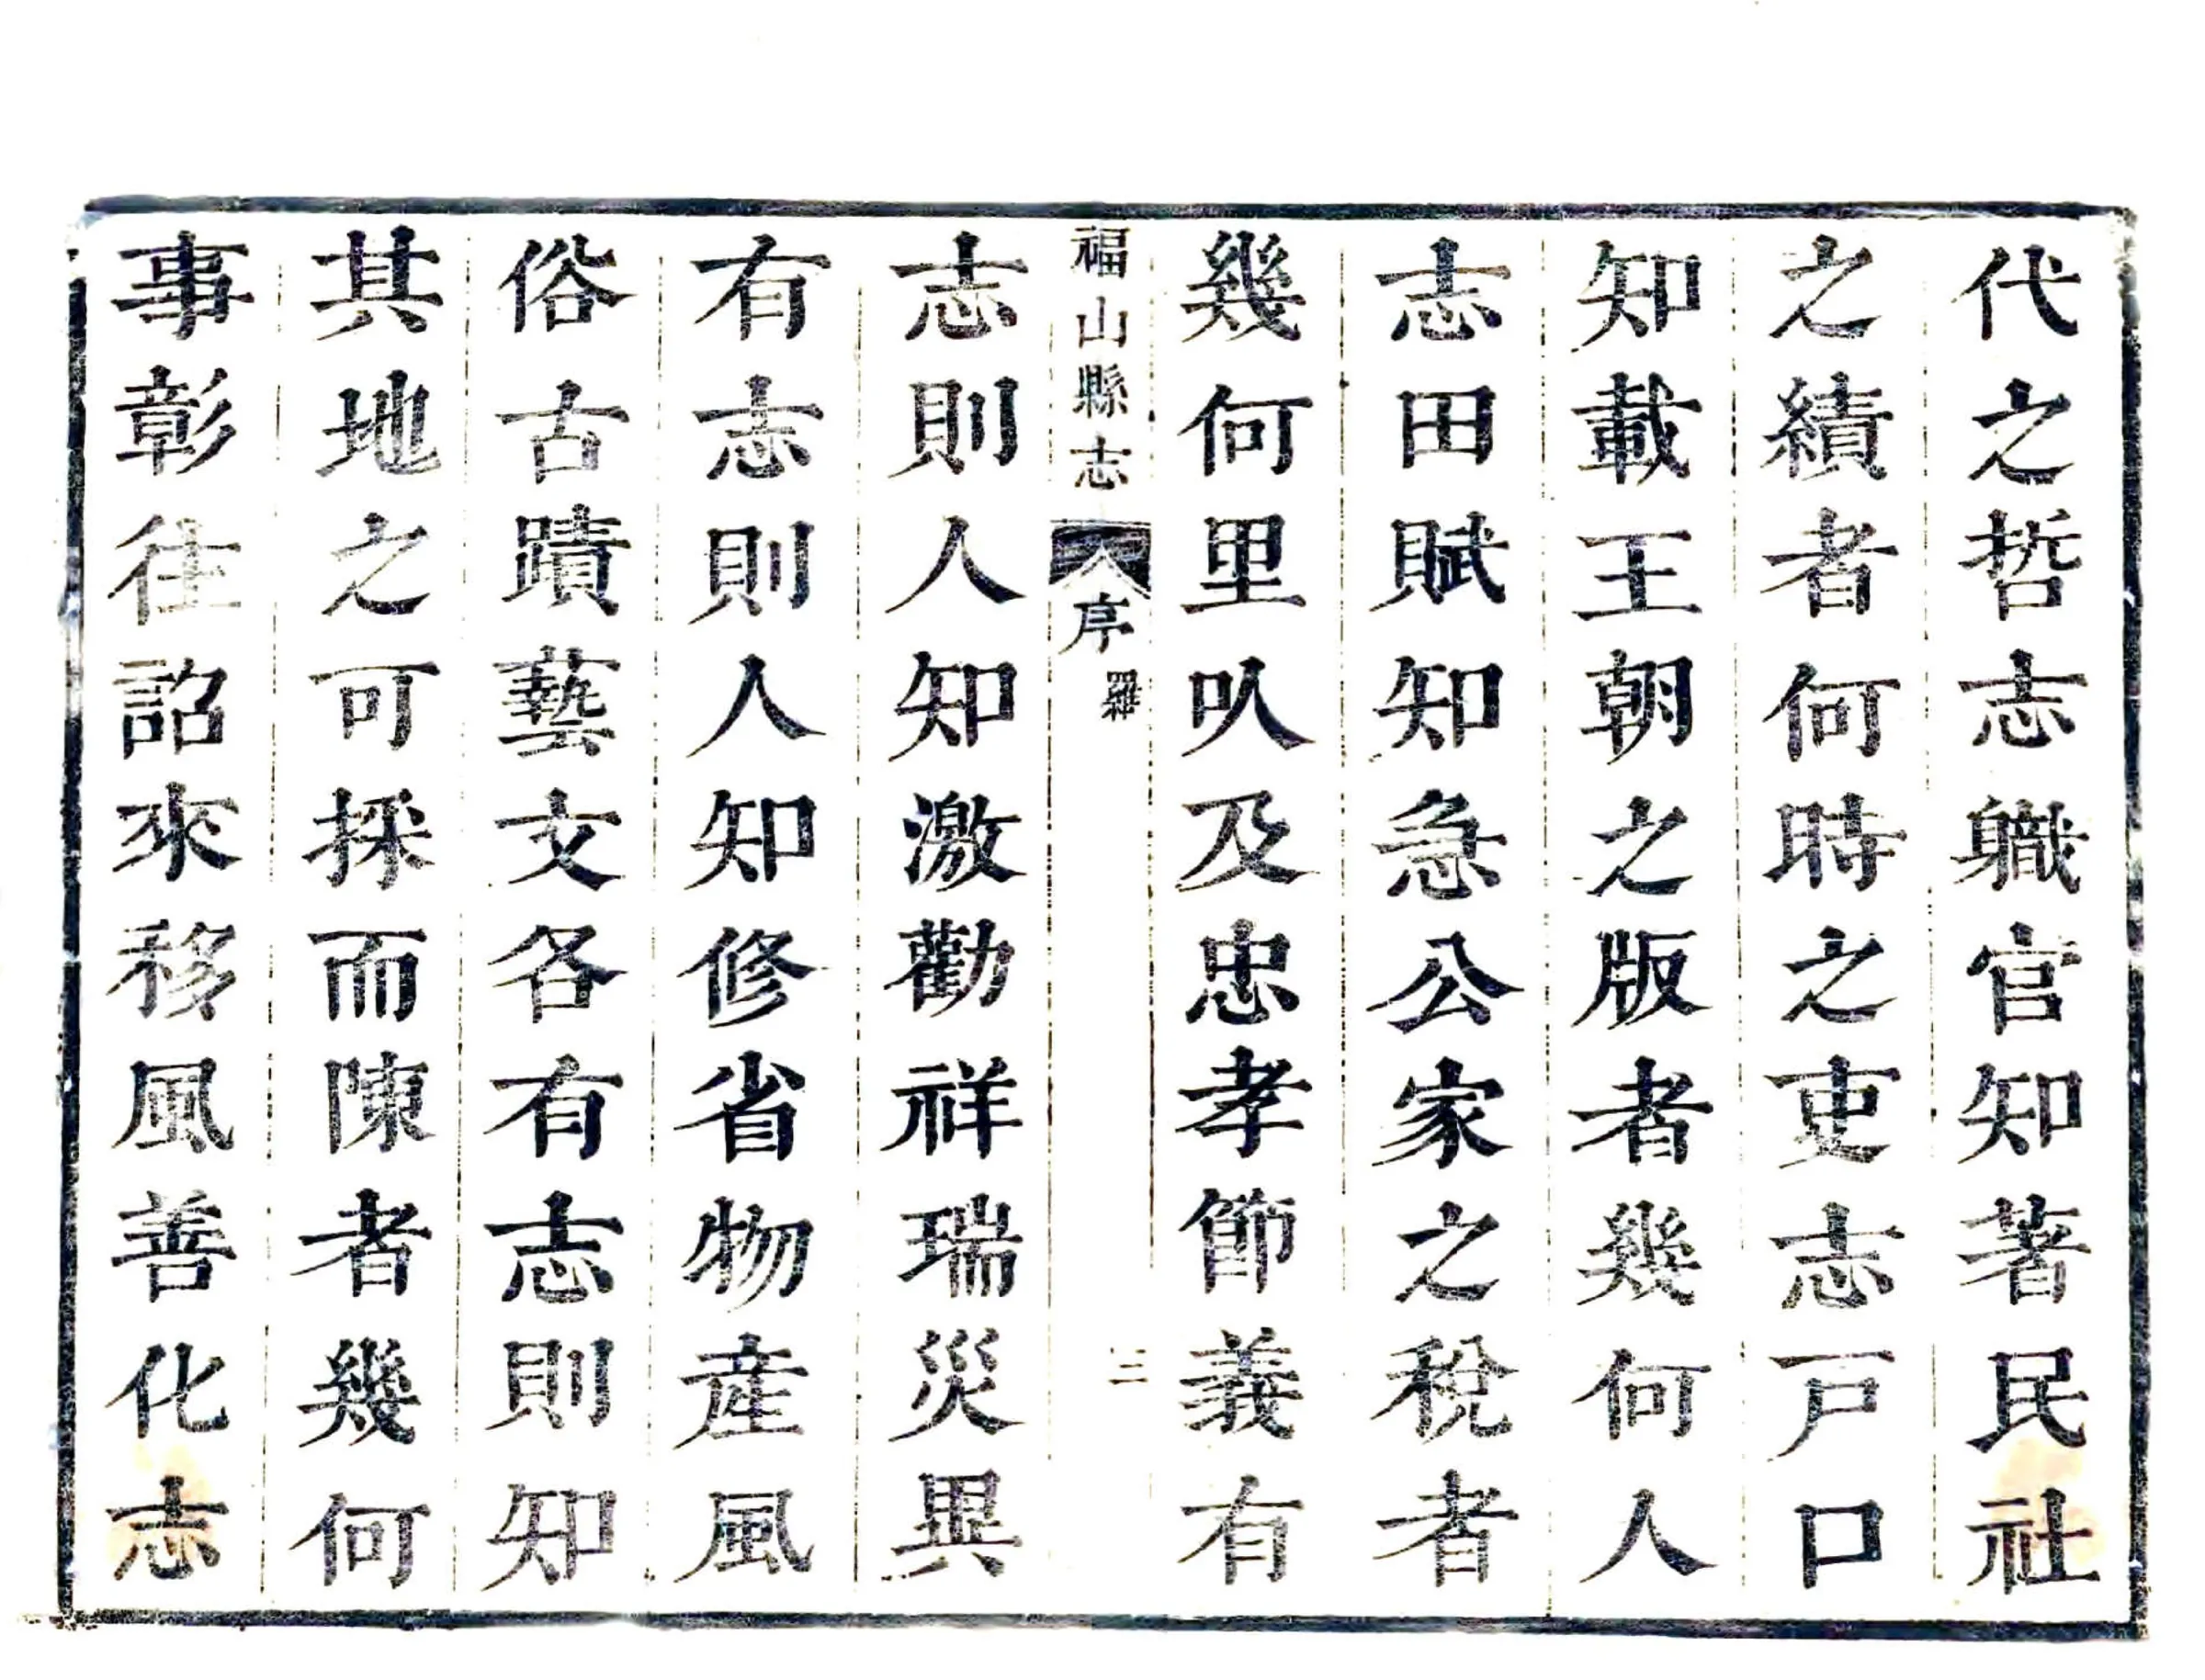 代之哲志職官知著民社
之績者何時之吏志戸口
知載王朝之版者幾何人
志田賦知急公家之稅者
幾何里㕥及忠孝節義有
福山縣志 序 羅 三
志則人知激勸祥瑞災異
有志則人知修省物產風
俗古蹟藝文各有志則知
其地之可採而陳者幾何
事彰往詔來移風善化志